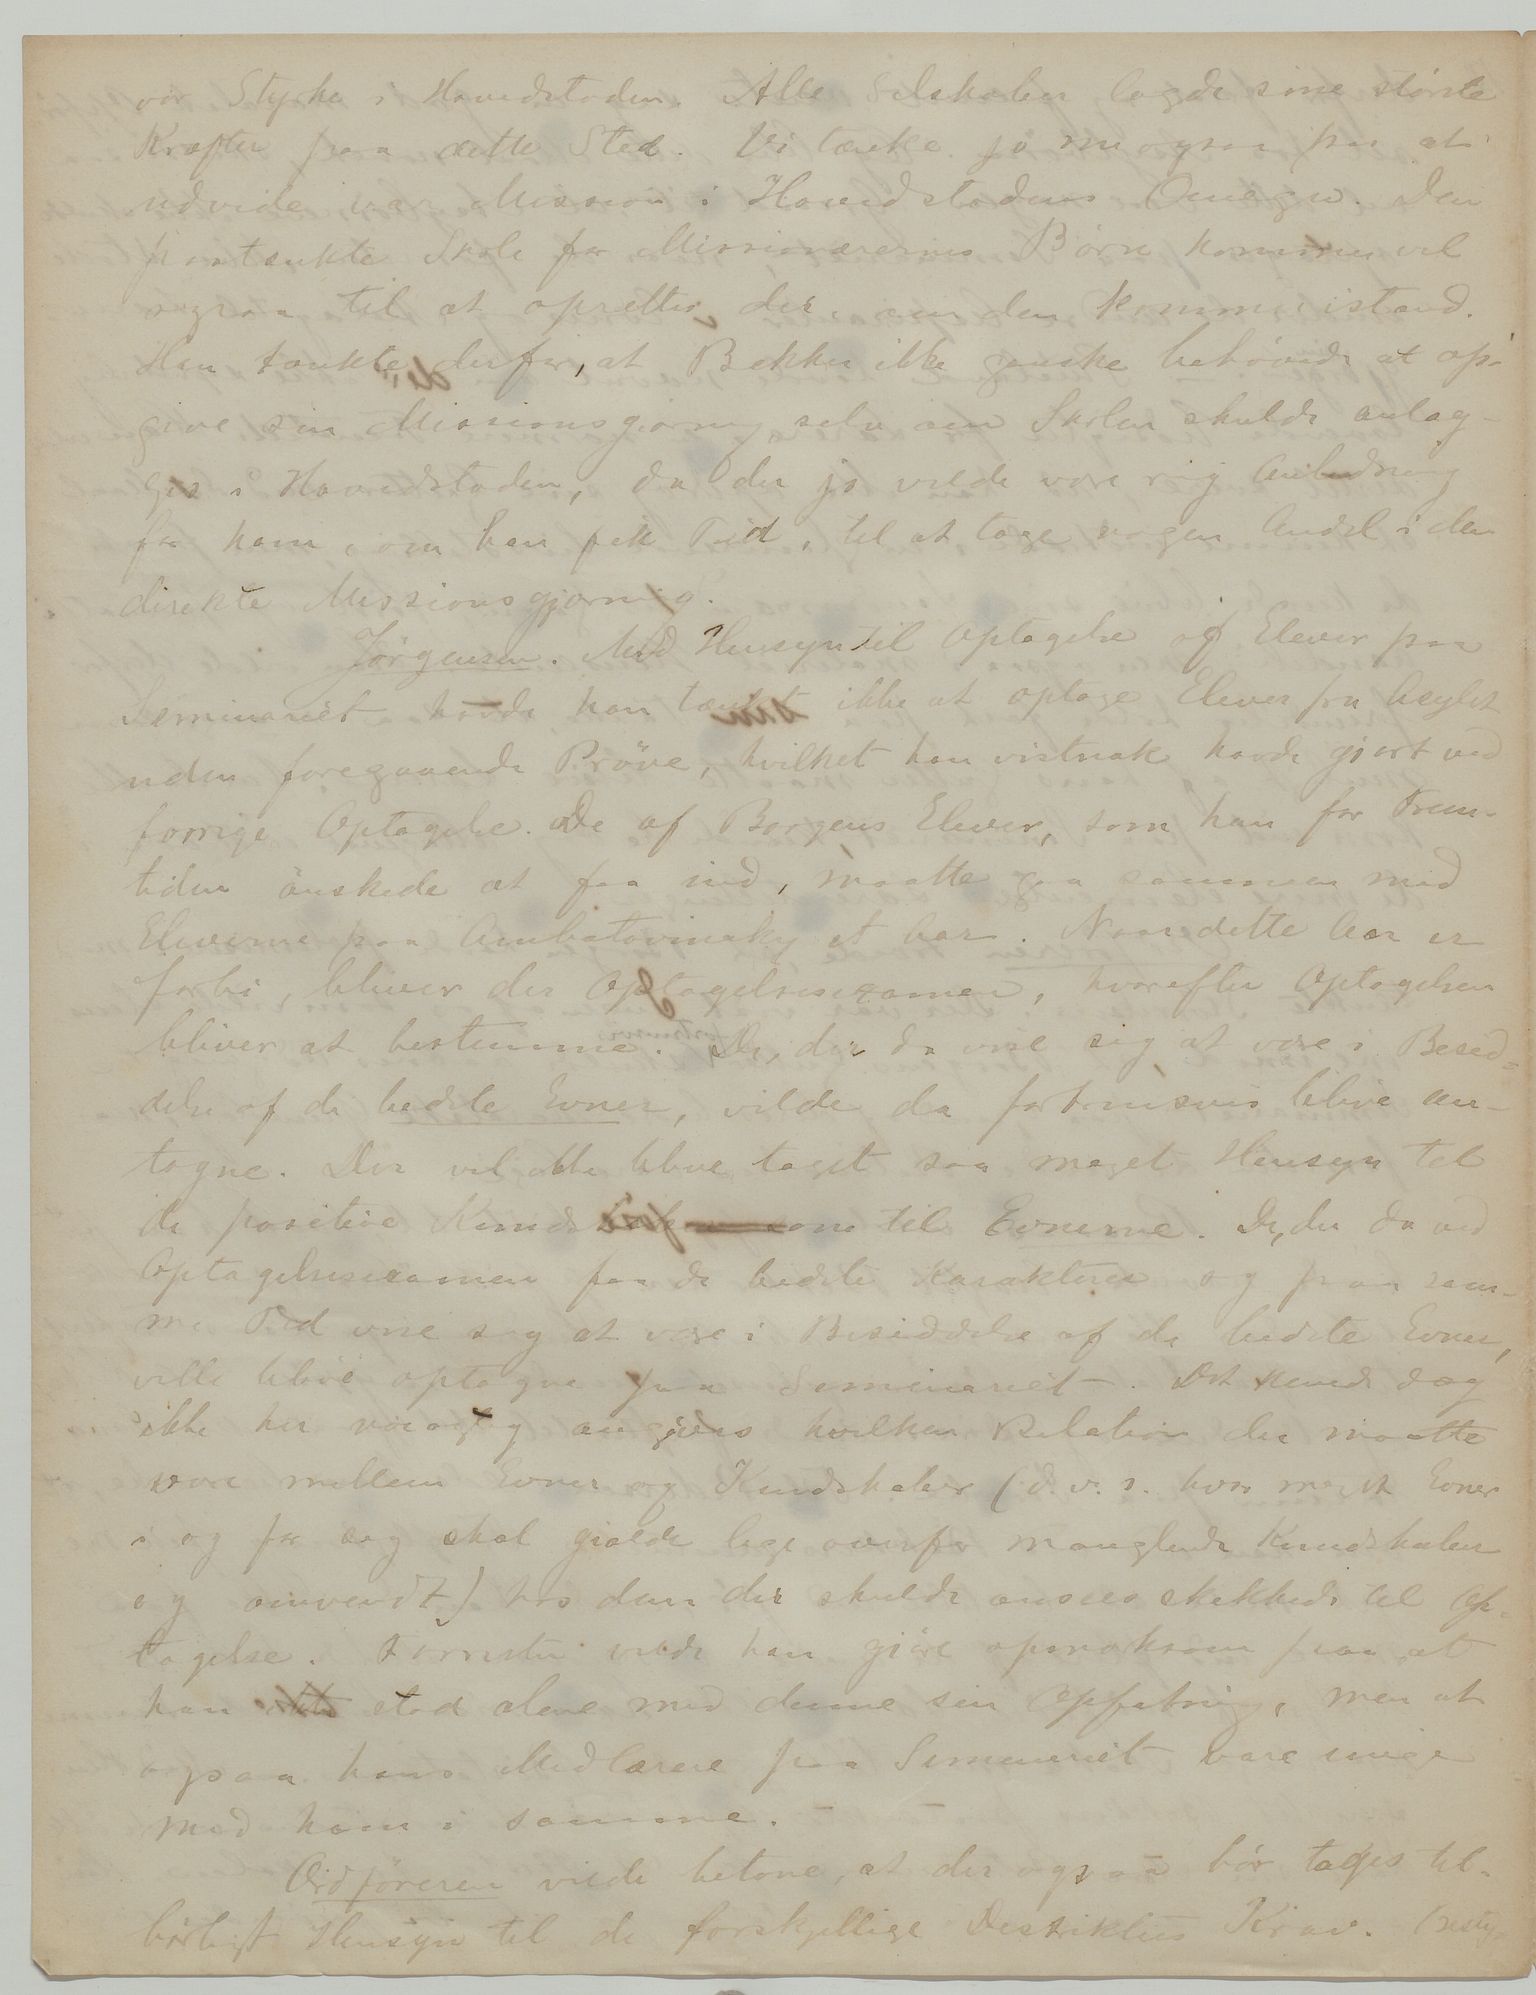 vor Styrke i Hovedstaden. Alle Selskaber lagde sine största
Kræfter paa dette Sted. Vi tænke jo nu ogsaa paa at
udvide vor Mission i Hovedstadens Omegn. Den
paatænkte Skole for Missionærernes Börn kommer vel
ogsaa til at oprettes der, om den kommer istand.
Han tænkte derfor, at Bekker ikke ganske behövede at op-
give sin Missionsgjerning, selv om Skolen skulde anlæg-
ges i Hovedstaden, da der jo vilde være rig Anledning
for ham, om han fik Tid, til at tage nogen Andel i den
direkte Missionsgjerning.
Jörgensen. Med Hensyn til Optagelse af Elever paa
Seminariet havde han tænkt ikke at optage Elever fra
uden foregaaende Pröve, hvilket han vistnok havde gjort ved
forrige Optagelse. De af Borgens Elever, som han for Frem-
tiden önskede at faa ind, maatte gaa sammen med
Eleverne paa Ambatovinaky et Aar. Naar dette Aar er
forbi, bliver der Optagelsesexamen, hvorefter Optagelsen
bliver at bestemme. De, der da vise sig at være i Besid-
delse af de bedste Evner, vilde da fortrinsvis blive an-
tagne. Der vil ikke blive taget saa meget Hensyn til
de positive som til Evnerne. De, der da ved
Optagelsesexamen faa de bedste Karakterer og paa sam-
me Tid vise sig at være i Besiddelse af de bedste Evner,
ville blive optagne paa Seminariet. Det kunde dog
ikke her nöiagtig angives hvilken Relation der maatte
være mellem Evner og Kundskaber (d. v. s. hvor meget Evner
i og for sig skal gjælde lige overfor manglende Kundskaber
og omvendt) hos dem der skulde ansees skikkede til Op-
tagelse. Forresten vilde han gjöre opmærksom paa, at
han ikke stod alene med denne sin Opfatning, men at
ogsaa hans Medlærere paa Seminariet vare enige
med ham i samme.
Ordföreren vilde betone, at der ogsaa bör tages til-
börligt Hensyn til de forskjellige Distrikters Krav.